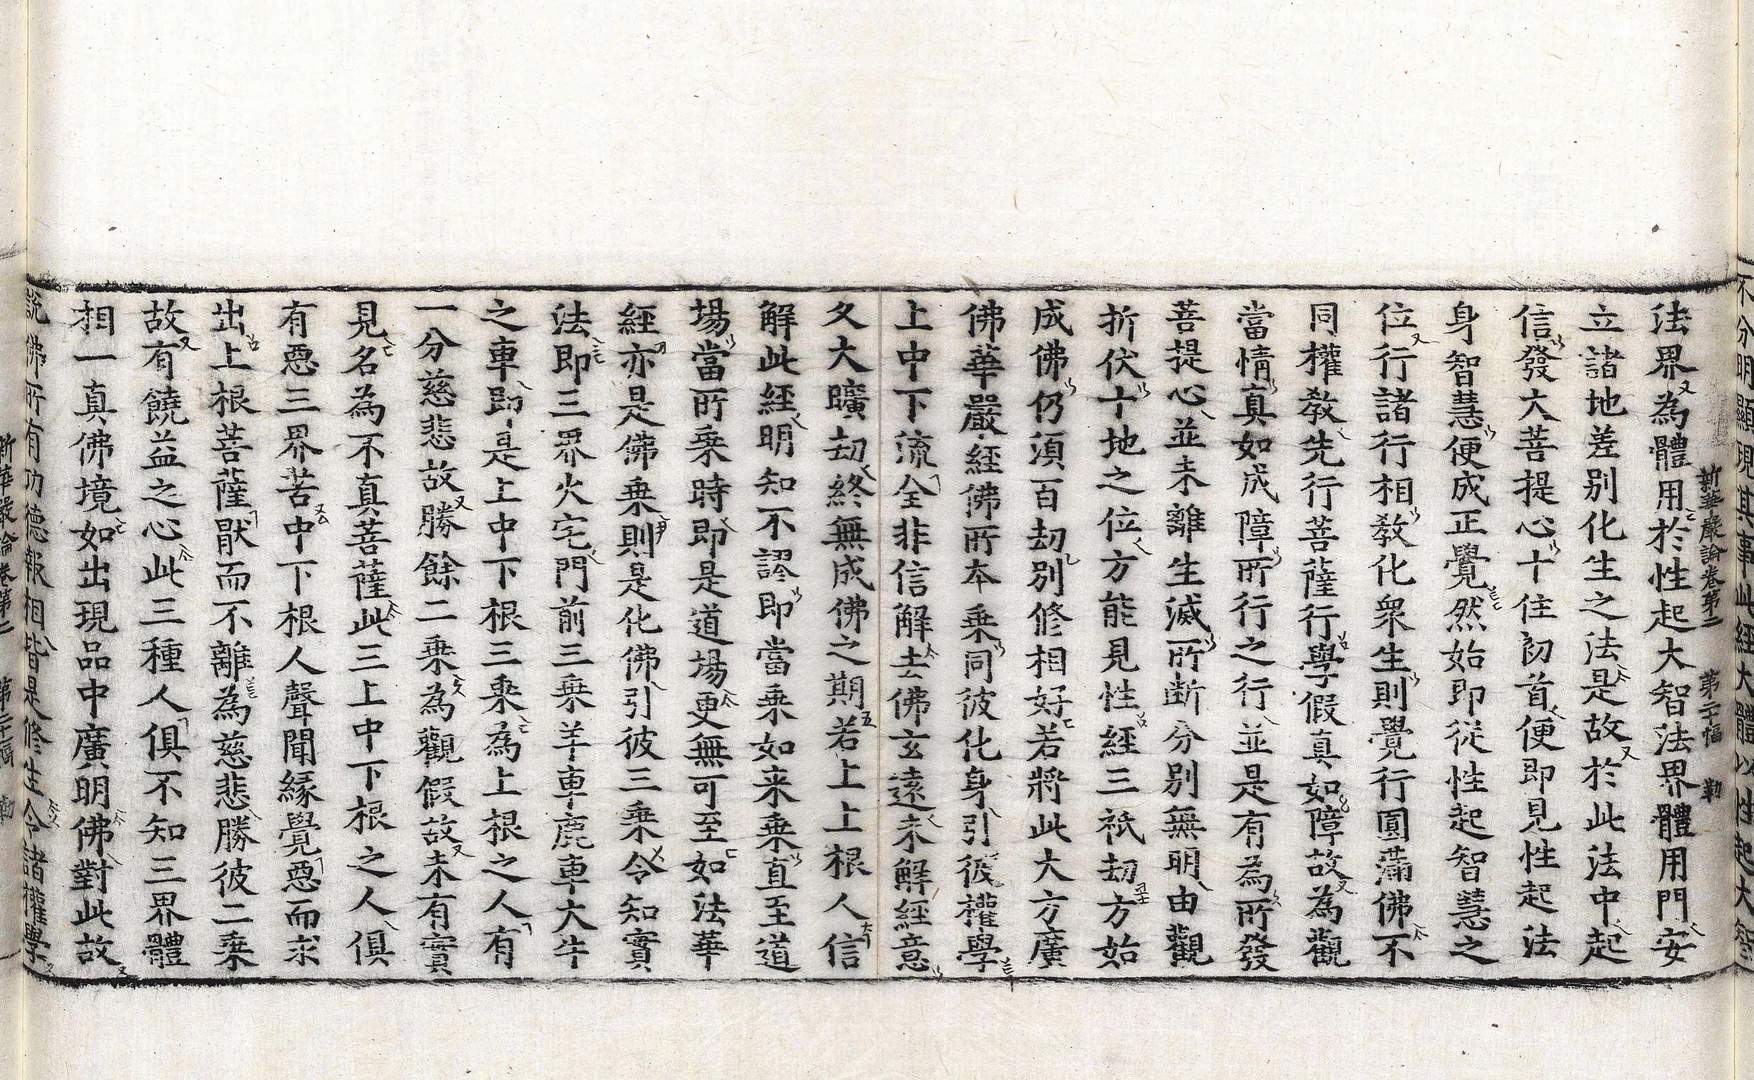 不分明顯現其事此經大體以性起大智
新華嚴論卷第二 第二十幅 勤
法界為體用於性起大智法界體用門安
立諸地差別化生之法是故於此法中起
信發大菩提心十住初首便即見性起法
身智慧便成正覺然始即從性起智慧之
位行諸行相教化衆生則覺行圓滿佛不
同權教先行菩薩行學假真如障故為觀
當情真如成障所行之行並是有為所發
菩提心並未離生滅所斷分別無明由觀
折伏十地之位方能見性經三祇劫方始
成佛仍須百劫別修相好若將此大方廣
佛華嚴經佛所本乗同彼化身引彼權學
上中下流全非信解去佛玄遠未解經意
久大曠劫終無成佛之期若上上根人信
解此經明知不謬即當乗如来乗直至道
場當所乗時即是道場更無可至如法華
經亦是佛乗則是化佛引彼三乗令知實
法即三界火宅門前三乗羊車鹿車大牛
之車即是上中下根三乗為上根之人有
一分慈悲故勝餘二乗為觀假故未有實
見名為不真菩薩此三上中下根之人俱
有惡三界苦中下根人聲聞緣覺惡而求
出上根菩薩猒而不離為慈悲勝彼二乗
故有饒益之心此三種人俱不知三界體
相一真佛境如出現品中廣明佛對此故
說佛所有功德報相皆是修生令諸權學
新華嚴論卷第二 第二十幅 勤